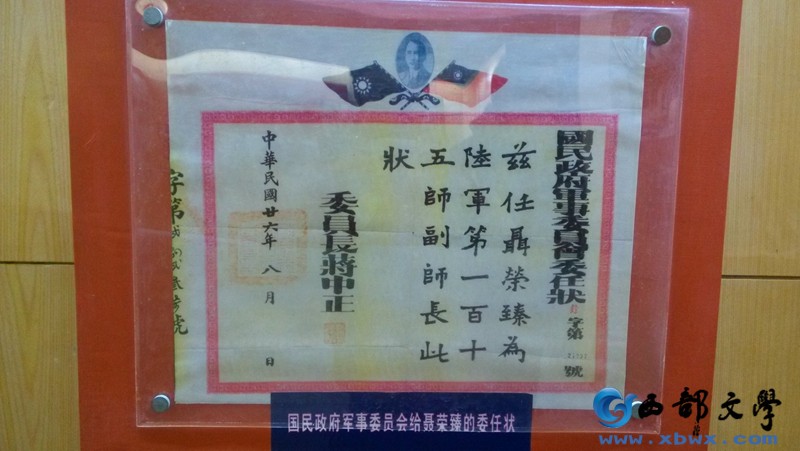 國民政府軍事委員會委任狀
字第
號
茲任聶榮臻為
陸軍第一百十
五師副師長此
狀
委員長蔣中正
中華民國廿六年八月 日
字第
號
国民政府军事委员会给聂荣臻的委任状
西部文学
www.xbwx.com